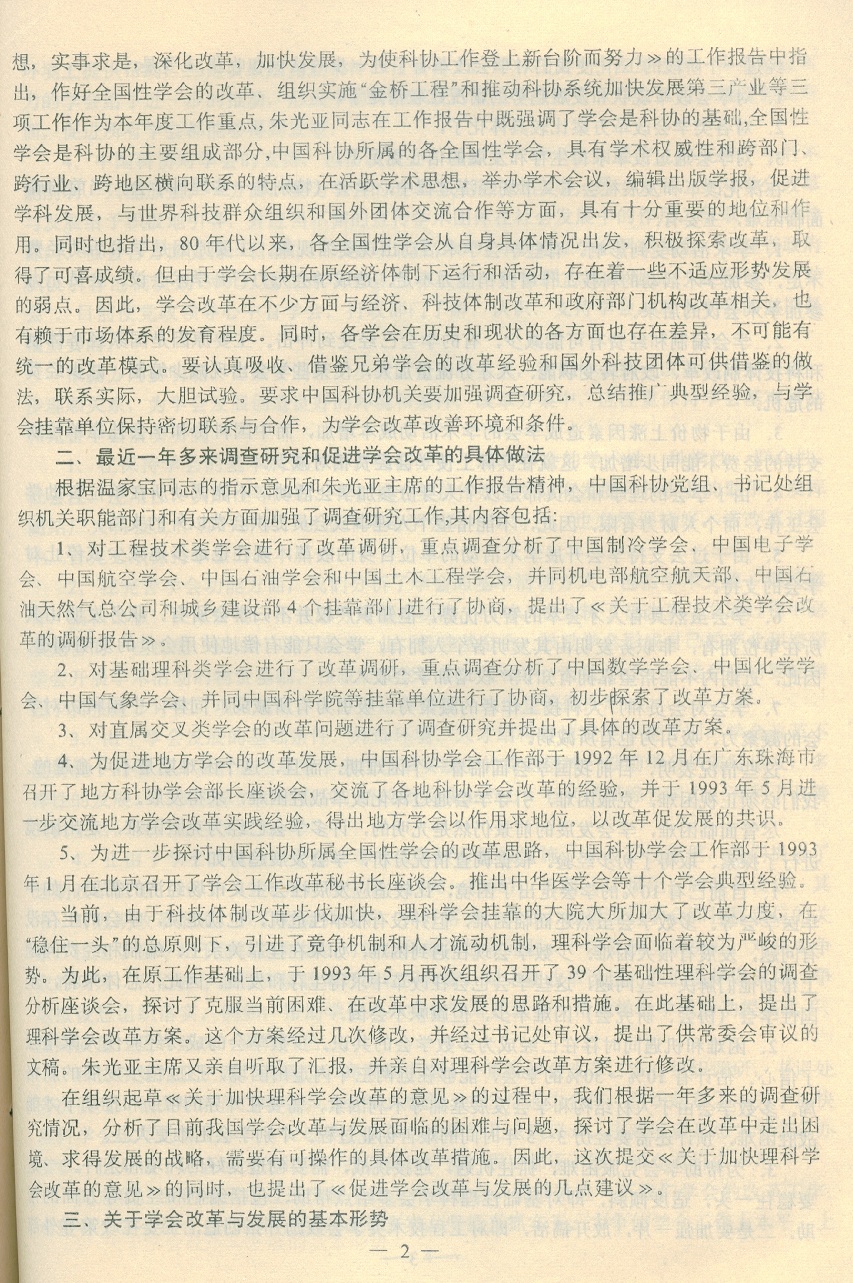 想，实事求是，深化改革，加快发展，为使科协工作登上新台阶而努力≫的工作报告中指
出，作好全国性学会的改革、组织实施“金桥工程”和推动科协系统加快发展第三产业等三
项工作作为本年度工作重点,朱光亚同志在工作报告中既强调了学会是科协的基础,全国性
学会是科协的主要组成部分,中国科协所属的各全国性学会，具有学术权威性和跨部门、
跨行业、跨地区横向联系的特点，在活跃学术思想，举办学术会议，编辑出版学报，促进
学科发展，与世界科技群众组织和国外团体交流合作等方面，具有十分重要的地位和作
用。同时也指出，80 年代以来，各全国性学会从自身具体情况出发，积极探索改革，取
得了可喜成绩。但由于学会长期在原经济体制下运行和活动，存在着一些不适应形势发展
的弱点。因此，学会改革在不少方面与经济、科技体制改革和政府部门机构改革相关，也
有赖于市场体系的发育程度。同时，各学会在历史和现状的各方面也存在差异，不可能有
统一的改革模式。要认真吸收、借鉴兄弟学会的改革经验和国外科技团体可供借鉴的做
法，联系实际，大胆试验。要求中国科协机关要加强调查研究，总结推广典型经验，与学
会挂靠单位保持密切联系与合作，为学会改革改善环境和条件。
二、最近一年多来调查研究和促进学会改革的具体做法
根据温家宝同志的指示意见和朱光亚主席的工作报告精神，中国科协党组、书记处组
织机关职能部门和有关方面加强了调查研究工作,其内容包括:
1、对工程技术类学会进行了改革调研，重点调查分析了中国制冷学会、中国电子学
会、中国航空学会、中国石油学会和中国土木工程学会，并同机电部航空航天部、中国石
油天然气总公司和城乡建设部 4 个挂靠部门进行了协商，提出了≪关于工程技术类学会改
革的调研报告≫。
2、对基础理科类学会进行了改革调研，重点调查分析了中国数学学会、中国化学学
会、中国气象学会、并同中国科学院等挂靠单位进行了协商，初步探索了改革方案。
3、对直属交叉类学会的改革问题进行了调查研究并提出了具体的改革方案。
4、为促进地方学会的改革发展，中国科协学会工作部于 1992 年 12 月在广东珠海市
召开了地方科协学会部长座谈会，交流了各地科协学会改革的经验，并于 1993 年 5 月进
一步交流地方学会改革实践经验，得出地方学会以作用求地位，以改革促发展的共识。
5、为进一步探讨中国科协所属全国性学会的改革思路，中国科协学会工作部于 1993
年 1 月在北京召开了学会工作改革秘书长座谈会。推出中华医学会等十个学会典型经验。
当前，由于科技体制改革步伐加快，理科学会挂靠的大院大所加大了改革力度，在
“稳住一头”的总原则下，引进了竞争机制和人才流动机制，理科学会面临着较为严峻的形
势。为此，在原工作基础上，于 1993 年 5 月再次组织召开了 39 个基础性理科学会的调查
分析座谈会，探讨了克服当前困难、在改革中求发展的思路和措施。在此基础上，提出了
理科学会改革方案。这个方案经过几次修改，并经过书记处审议，提出了供常委会审议的
文稿。朱光亚主席又亲自听取了汇报，并亲自对理科学会改革方案进行修改。
在组织起草≪关于加快理科学会改革的意见≫的过程中，我们根据一年多来的调查研
究情况，分析了目前我国学会改革与发展面临的困难与问题，探讨了学会在改革中走出困
境、求得发展的战略，需要有可操作的具体改革措施。因此，这次提交≪关于加快理科学
会改革的意见≫的同时，也提出了≪促进学会改革与发展的几点建议≫。
三、关于学会改革与发展的基本形势
— 2 —